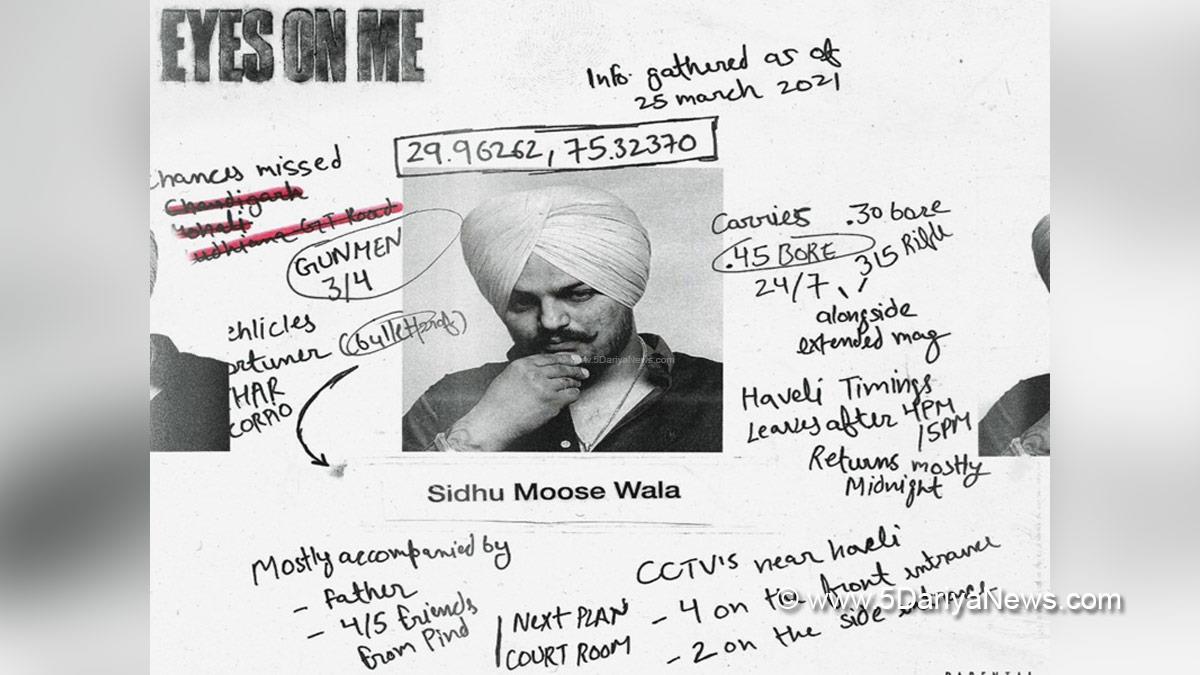 EYES ON ME
Info. gathered as of
25 march 2021
29.96262, 75.32370
Chances missed
Chandigarh
Mohali
udhiana GT Road
GUNMEN
3/4
ehlicles
ortuner (bulletproof)
HAR
CORPIO
Carries .30 bore
.45 BORE 315 Rifle
24/7
alongside
extended mag
Haveli Timings
Leaves after 4PM
/5PM
Returns mostly
Midnight
www.5DariyaNews.com
Sidhu Moose Wala
Mostly accompanied by
- father
- 4/5 friends
from Pind
NEXT PLAN
COURT ROOM
CCTV's near haveli
- 4 on the front entrance
- 2 on the side entrance
© www.5DariyaNews.com